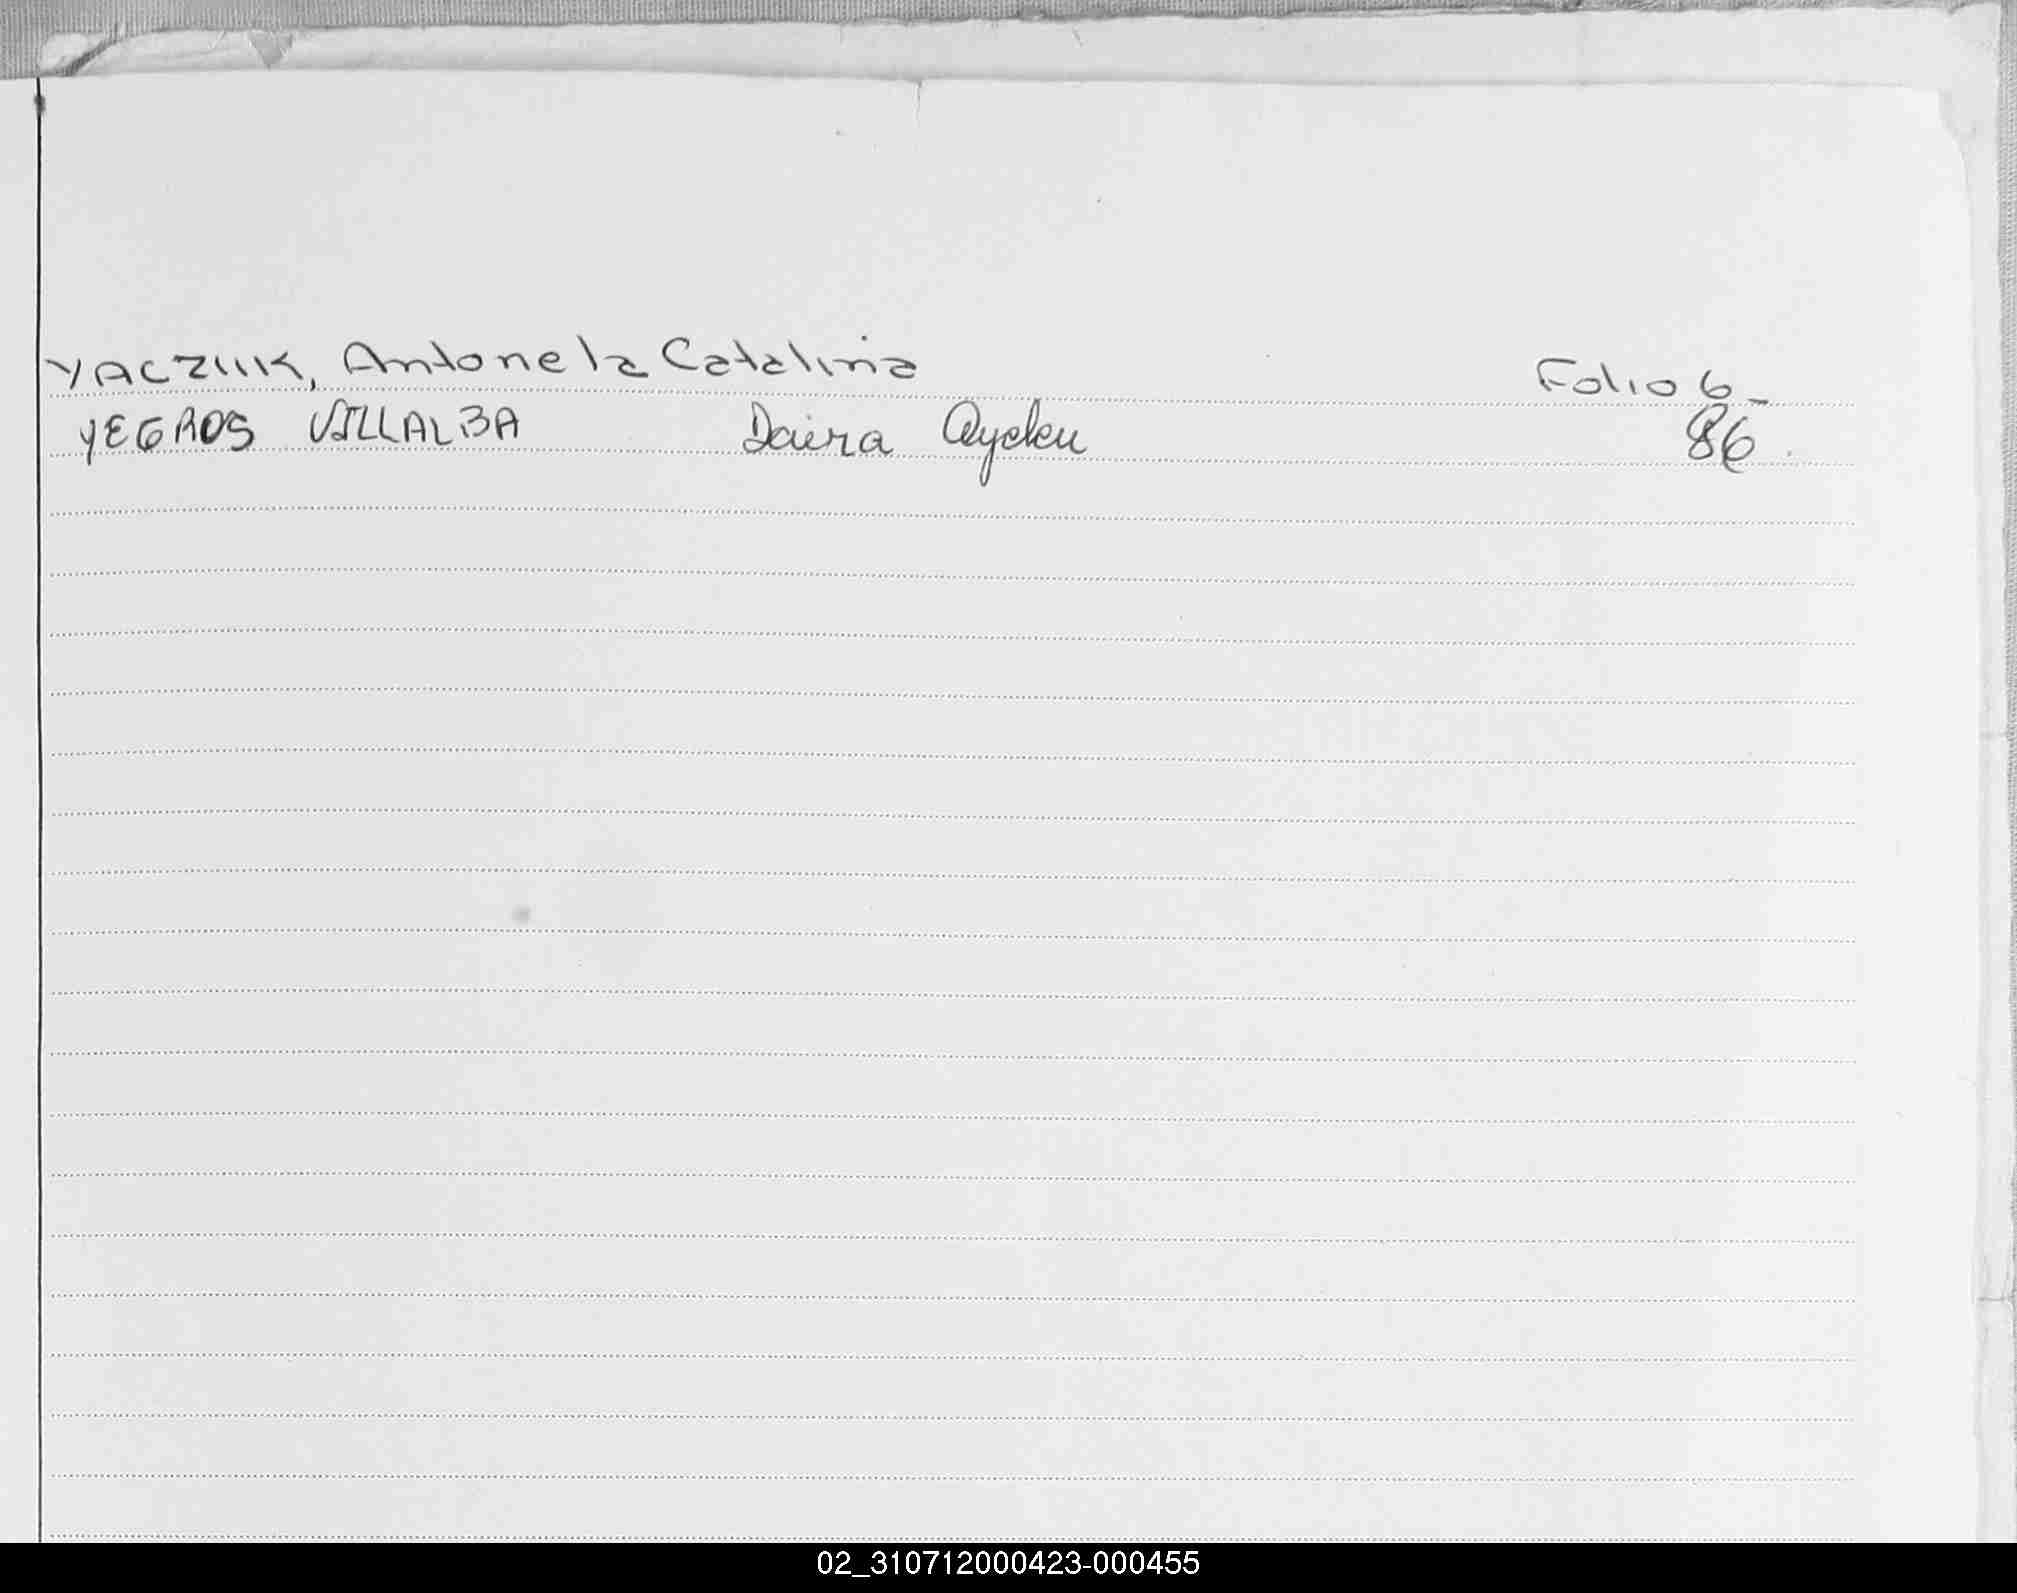 YACZUK, Antonela Catalina Folio 6_
YEGROS VILLALBA Daira Ayelen 86.
02_310712000423-000455